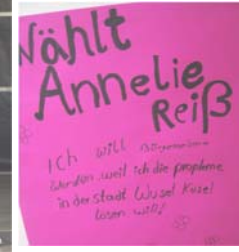 Wählt
Annelie
Reiß
Ich will Bürgermeisterin
werden, weil ich die propleme
in der stadt Wusel Kusel
lösen will!